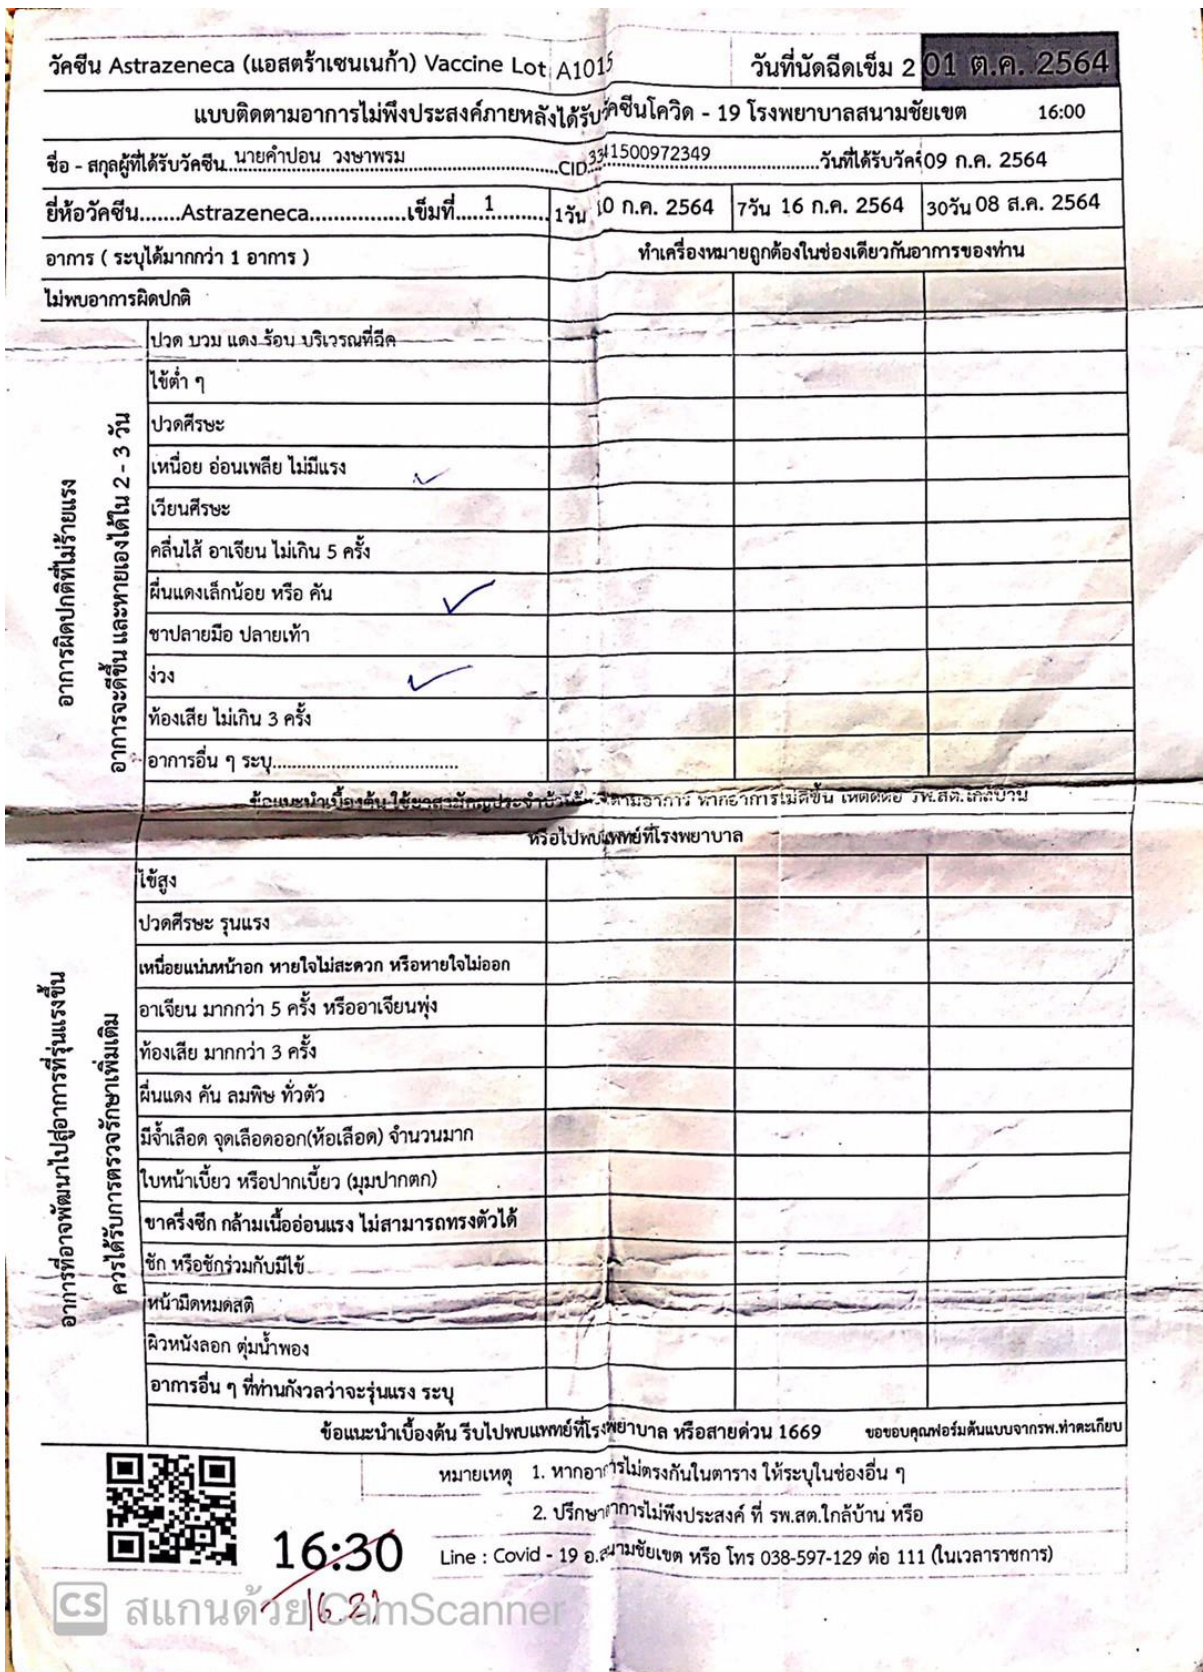 วัคซีน Astrazeneca (แอสตร้าเซนเนก้า) Vaccine Lot A1015 วันที่นัดฉีดเข็ม 2 01 ต.ค. 2564
แบบติดตามอาการไม่พึงประสงค์ภายหลังได้รับวัคซีนโควิด - 19 โรงพยาบาลสนามชัยเขต 16:00
ชื่อ - สกุลผู้ที่ได้รับวัคซีน นายคำปอน วงษาพรม CID 3341500972349 วันที่ได้รับวัคซี 09 ก.ค. 2564
ยี่ห้อวัคซีน.......Astrazeneca.................เข็มที่.....1........... 1วัน 10 ก.ค. 2564 7วัน 16 ก.ค. 2564 30วัน 08 ส.ค. 2564
อาการ ( ระบุได้มากกว่า 1 อาการ ) ทำเครื่องหมายถูกต้องในช่องเดียวกันอาการของท่าน
ไม่พบอาการผิดปกติ
อาการผิดปกติที่ไม่ร้ายแรง
อาการจะดีขึ้น และหายเองได้ใน 2 - 3 วัน
ปวด บวม แดง ร้อน บริเวรณที่ฉีด
ไข้ต่ำ ๆ
ปวดศีรษะ
เหนื่อย อ่อนเพลีย ไม่มีแรง ✓
เวียนศีรษะ
คลื่นไส้ อาเจียน ไม่เกิน 5 ครั้ง
ผื่นแดงเล็กน้อย หรือ คัน ✓
ชาปลายมือ ปลายเท้า
ง่วง ✓
ท้องเสีย ไม่เกิน 3 ครั้ง
อาการอื่น ๆ ระบุ...................................
ข้อแนะนำเบื้องต้น ใช้ยาสามัญประจำบ้าน ตามอาการ หากอาการไม่ดีขึ้น ให้ติดต่อ รพ.สต.ใกล้บ้าน
หรือไปพบแพทย์ที่โรงพยาบาล
อาการที่อาจพัฒนาไปสู่อาการที่รุ่นแรงขึ้น
ควรได้รับการตรวจรักษาเพิ่มเติม
ไข้สูง
ปวดศีรษะ รุนแรง
เหนื่อยแน่นหน้าอก หายใจไม่สะดวก หรือหายใจไม่ออก
อาเจียน มากกว่า 5 ครั้ง หรืออาเจียนพุ่ง
ท้องเสีย มากกว่า 3 ครั้ง
ผื่นแดง คัน ลมพิษ ทั่วตัว
มีจ้ำเลือด จุดเลือดออก(ห้อเลือด) จำนวนมาก
ใบหน้าเบี้ยว หรือปากเบี้ยว (มุมปากตก)
ขาครึ่งซีก กล้ามเนื้ออ่อนแรง ไม่สามารถทรงตัวได้
ชัก หรือชักร่วมกับมีไข้
หน้ามืดหมดสติ
ผิวหนังลอก ตุ่มน้ำพอง
อาการอื่น ๆ ที่ท่านกังวลว่าจะรุ่นแรง ระบุ
ข้อแนะนำเบื้องต้น รีบไปพบแพทย์ที่โรงพยาบาล หรือสายด่วน 1669 ขอขอบคุณฟอร์มต้นแบบจากรพ.ท่าตะเกียบ
หมายเหตุ 1. หากอาการไม่ตรงกันในตาราง ให้ระบุในช่องอื่น ๆ
2. ปรึกษาอาการไม่พึงประสงค์ ที่ รพ.สต.ใกล้บ้าน หรือ
Line : Covid - 19 อ.สนามชัยเขต หรือ โทร 038-597-129 ต่อ 111 (ในเวลาราชการ)
16:30
16.21
CS สแกนด้วย CamScanner